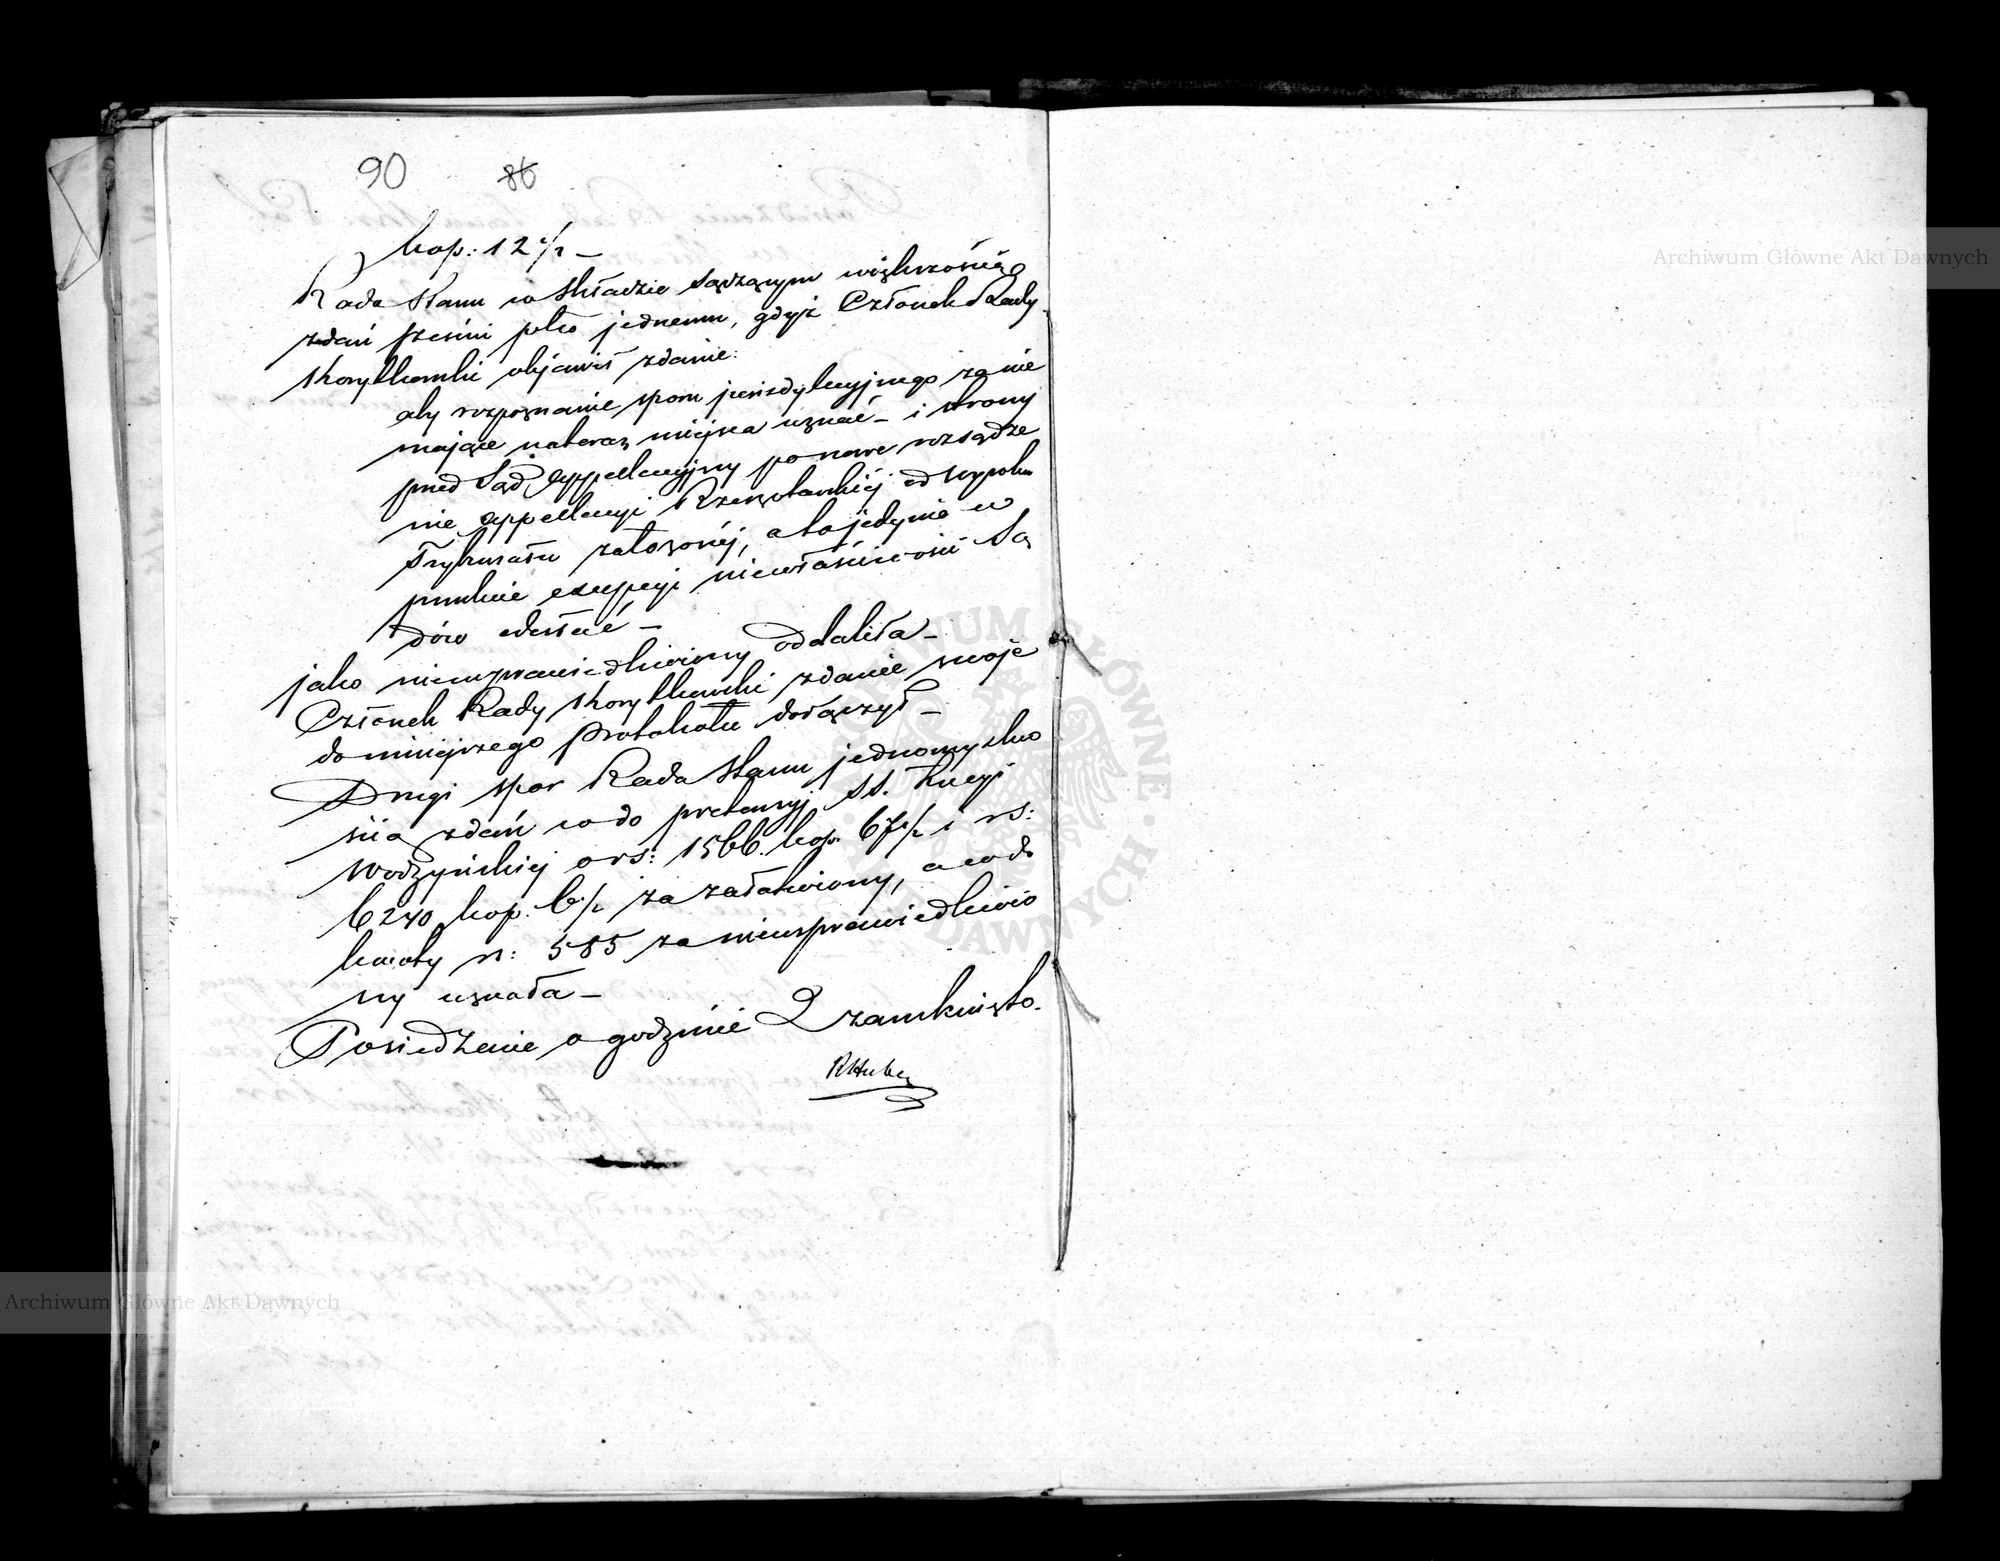 90 86
kop: 12 1/2 –
Rada Stanu w składzie sądzącym większością
zdań sześciu pko jednemu, gdyż Członek Rady
Korytkowski objawił zdanie:
aby rozpoznanie sporu jurisdykcyjnego za nie
mające na teraz miejsca uznać – i strony
przed Sąd Appellacyjny ponowne rozsądze
nie appellacyi Rzeszotarskiej od wyroku
Trybunału założonéj, a to jedynie w
punkcie excepcyi niewłaściwości Są
dów odesłać –
jako nieusprawiedliwiony oddaliła –
Członek Rady Korytkowski zdanie swoje
do niniejszego protokołu dołączył –
Drugi spór Rada Stanu jednomyślno
ścią zdań co do pretensyj SS. Łucyi
Wodzyńskiej o rs: 1566. kop. 67 1/2 i rs:
6240 kop. 6 1/2 za załatwiony, a co do
kwoty rs: 585 za nieusprawiedliwio
ny uznała –
Posiedzenie o godzinie 2 zamknięto.
RHube
Archiwum Główne Akt Dawnych
Archiwum Główne Akt Dawnych
ARCHIWUM GŁÓWNE AKT DAWNYCH